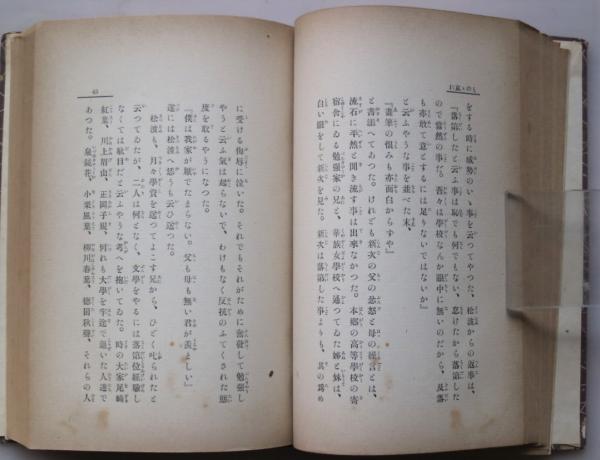 をする時に威勢のいゝ事を云つてやつた、松波からの返事は、
『落第したと云ふ事は恥でも何でもない、怠けたから落第した
ので當然の事だ。吾々は學校なんか眼中に無いのだから、及落
も亦敢て意とするには足りないではないか』
と云ふやうな事を並べた末、
『畫筆の恨みも亦面白からずや』
と書添へてあつた。けれども新次の父の忿怒と母の繰言とは、
流石に平然と聞き流す事は出來なかつた。本郷の高等學校の寄
宿舍にゐる勉強家の兄と、華族女學校へ通つてゐた姉と妹は、
白い眼をして新次を見た。新次は落第した事よりも、其の爲め
65
に受ける侮辱に泣いた。それでもそれがために奮發して勉強し
やうと云ふ氣は起らないで、わけもなく反抗のふてくされた態
度を取るやうになつた。
『僕は我家が厭でたまらない。父も母も無い君が羨しい』
遂には松波へ恁うも云ひ送つた。
松波も、月々學資を送つてよこす兄から、ひどく叱られたと
云つてゐたが、二人は何となく、文學をやるには落第位經驗し
なくては駄目だと云ふやうな考へを抱いてゐた。時の大家尾崎
紅葉、川上眉山、正岡子規、何れも大學を中途で退いた人達で
あつた。泉鏡花、小栗風葉、柳川春葉、德田秋聲、それらの人